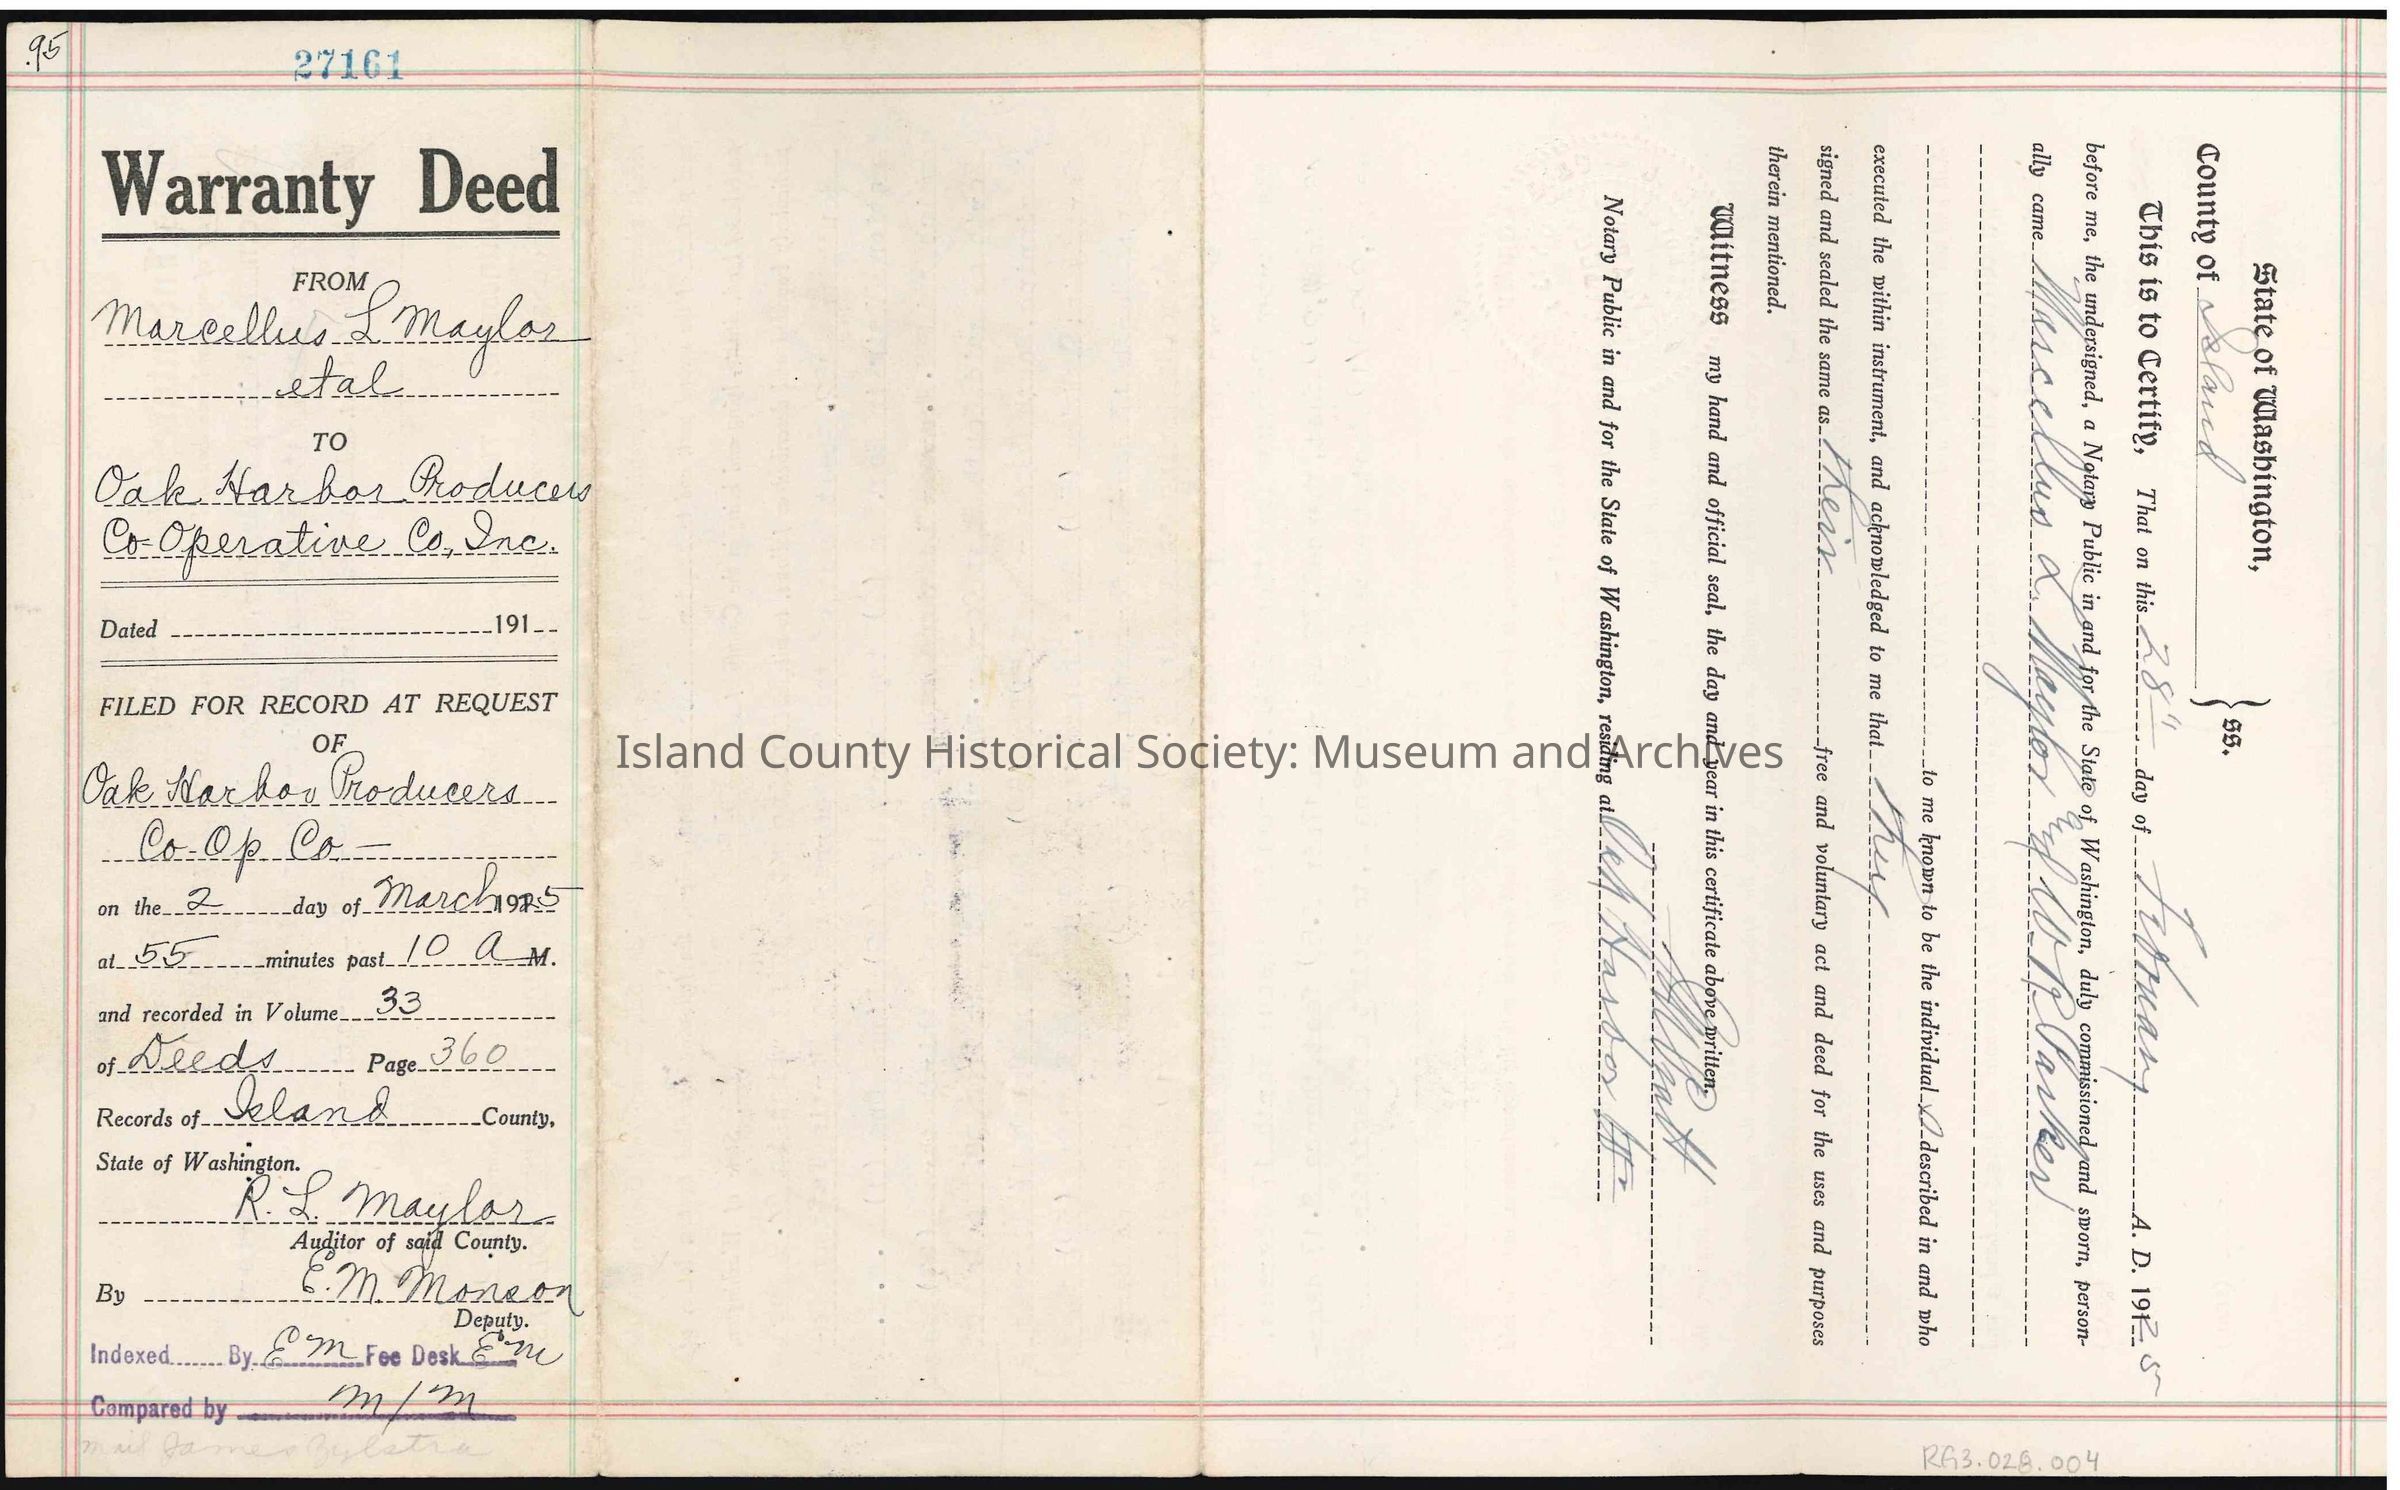 .95
27161
Warranty Deed
FROM
Marcellus L Maylor
et al
TO
Oak Harbor Producers
Co-Operative Co, Inc.
Dated 191
FILED FOR RECORD AT REQUEST
OF
Oak Harbor Producers
Co-Op Co —
on the 2 day of March 1925
at 55 minutes past 10 A M.
and recorded in Volume 33
of Deeds Page 360
Records of Island County,
State of Washington.
R. L. Maylor
Auditor of said County.
By E. M. Monson
Deputy.
Indexed By E M Fee Desk E M
Compared by M/M
mail James Zylstra
Island County Historical Society: Museum and Archives
State of Washington,
County of Island
ss.
This is to Certify, That on this 28" day of February A. D. 1925
before me, the undersigned, a Notary Public in and for the State of Washington, duly commissioned and sworn, person-
ally came Marcellus L. Maylor and W. P. Barker
to me known to be the individual s described in and who
executed the within instrument, and acknowledged to me that they
signed and sealed the same as their free and voluntary act and deed for the uses and purposes
therein mentioned.
Witness my hand and official seal, the day and year in this certificate above written.
Notary Public in and for the State of Washington, residing at Oak Harbor Wn
RG3.028.004